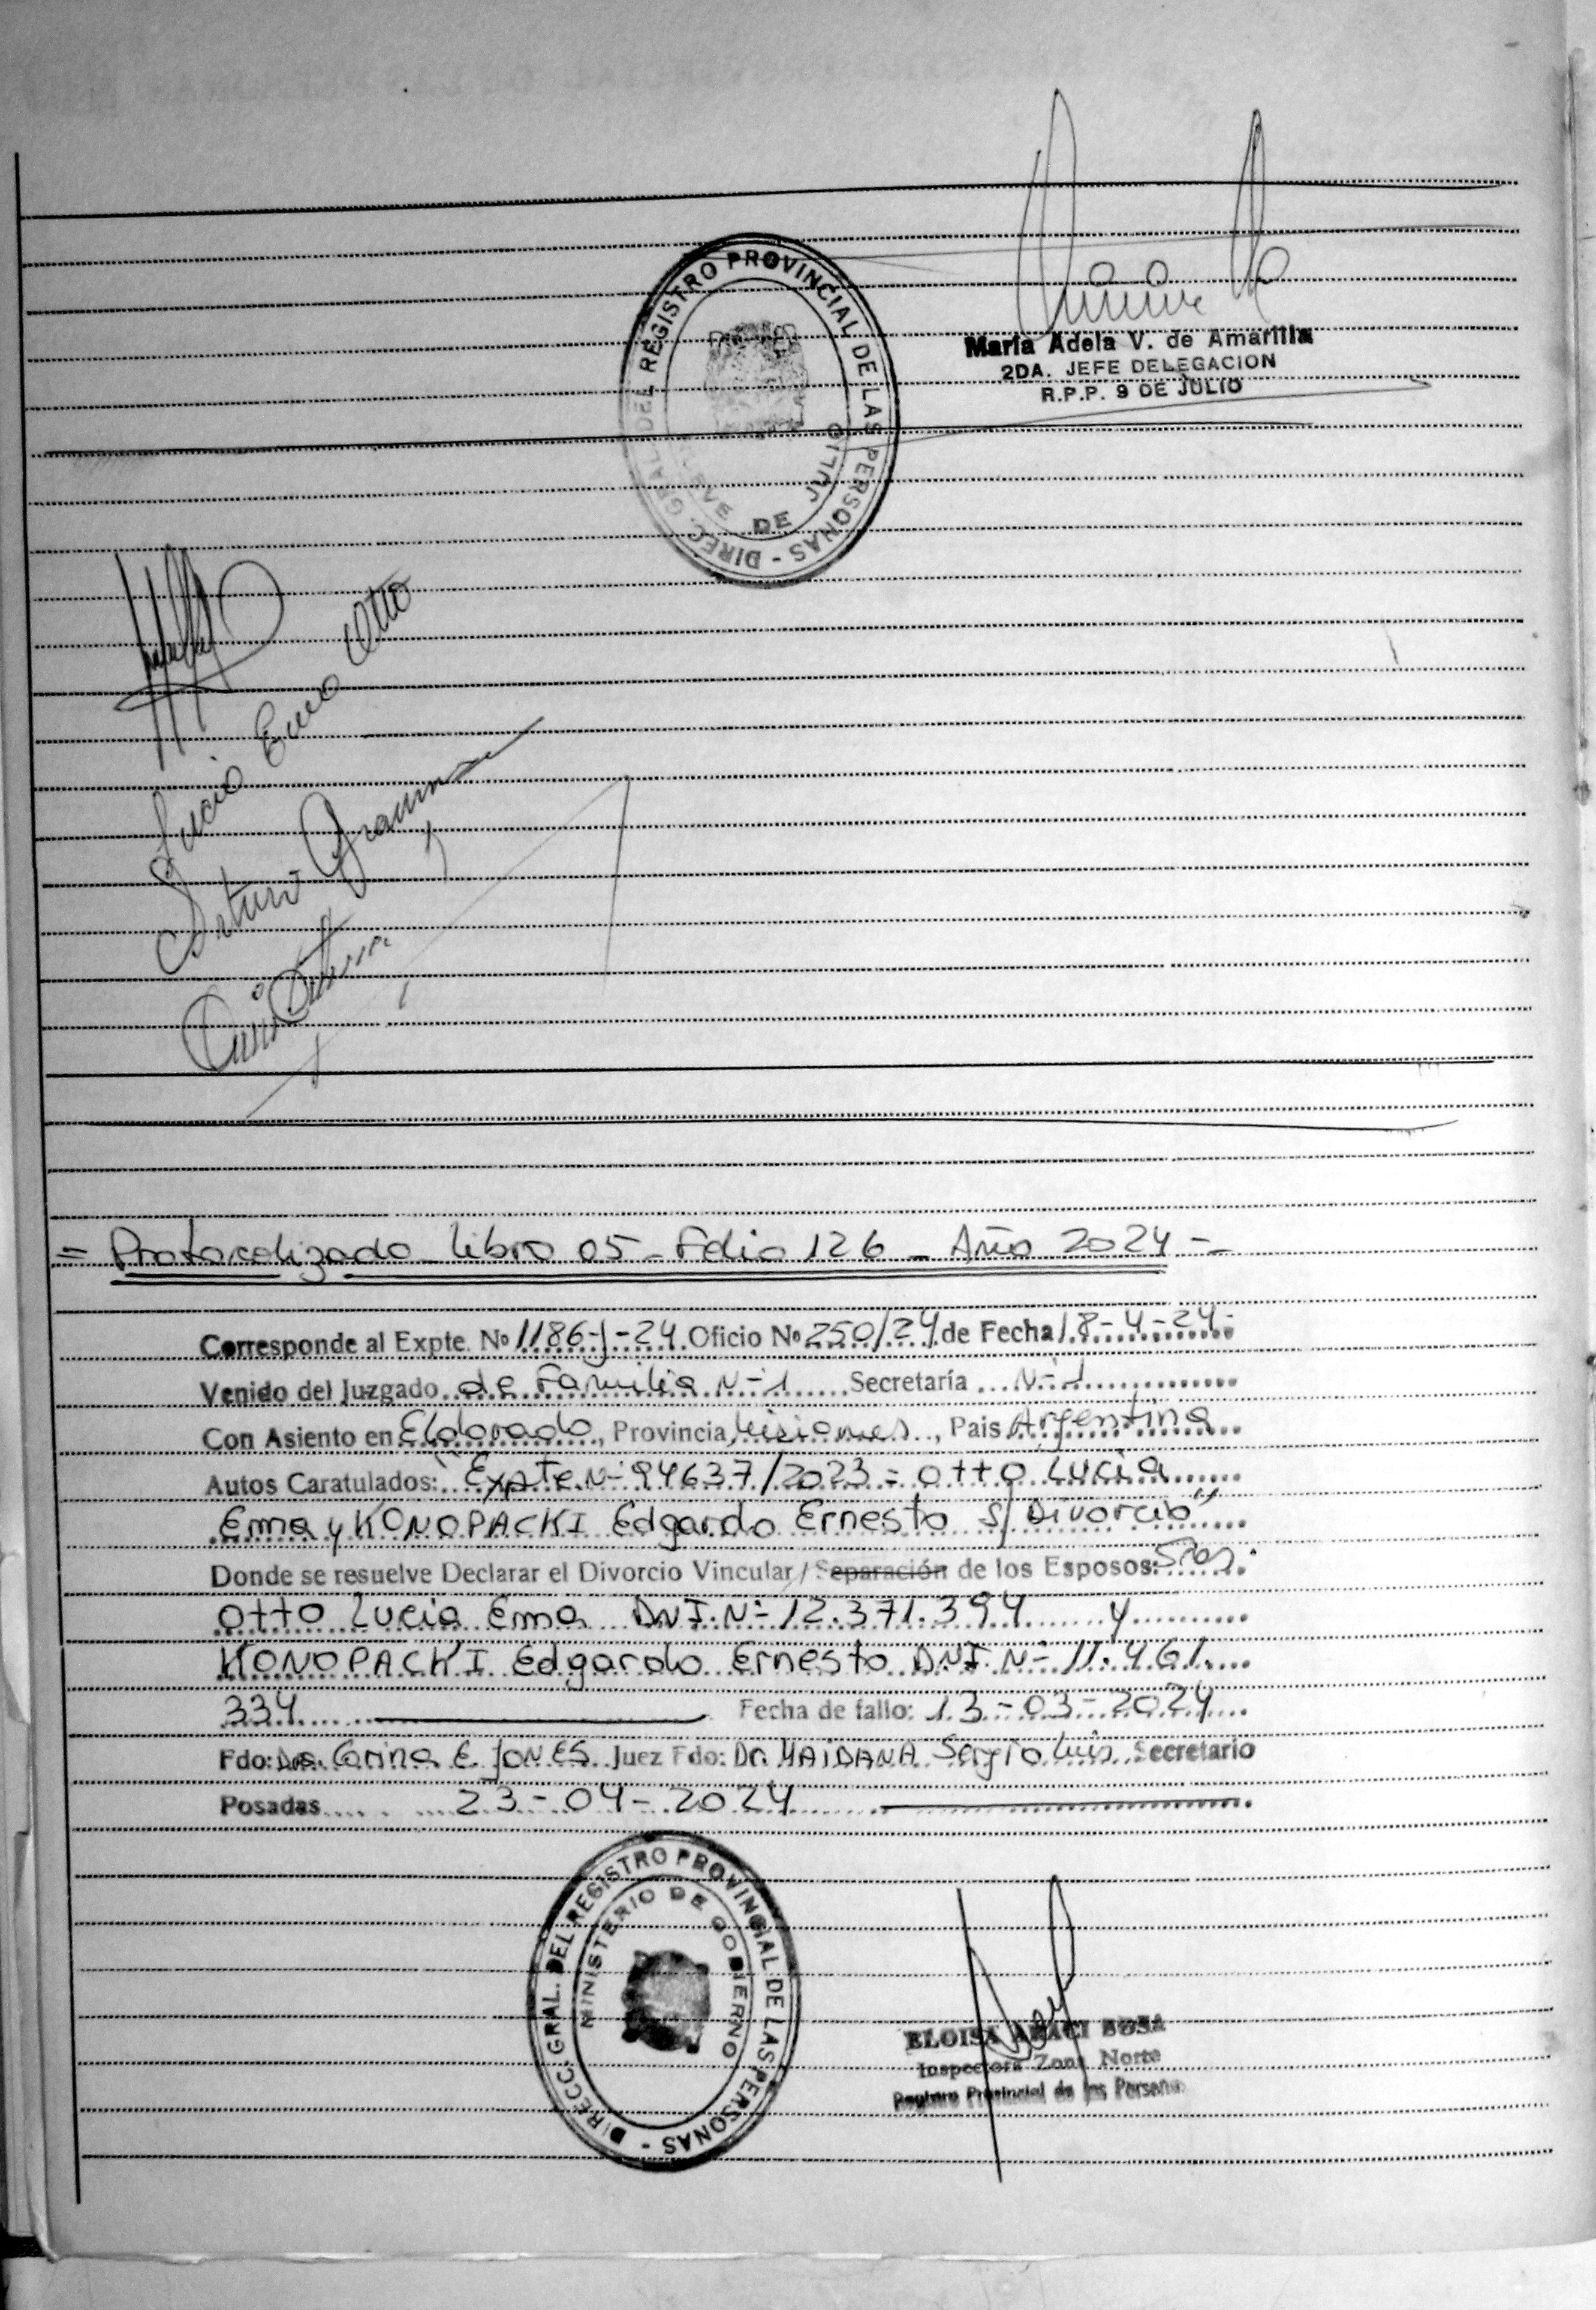 DIREC. GRAL. DEL REGISTRO PROVINCIAL DE LAS PERSONAS -
DE JULIO
María Adela V. de Amarilla
2DA. JEFE DELEGACION
R.P.P. 9 DE JULIO
Lucia Ema Otto
Arturo
= Protocolizado Libro 05 - Folio 126 - Año 2024 -=
Corresponde al Expte. Nº 1186-J-24 Oficio Nº 250/24 de Fecha 18-4-24-
Venido del Juzgado de Familia Nº 1 Secretaría Nº 1
Con Asiento en Eldorado, Provincia Misiones, Pais Argentina
Autos Caratulados: "Expte Nº 94637/2023 = Otto Lucia
Ema y KONOPACKI Edgardo Ernesto S/ Divorcio"
Donde se resuelve Declarar el Divorcio Vincular / Separación de los Esposos: Sres.
Otto Lucia Ema DNI. Nº 12.371.394 y
KONOPACKI Edgardo Ernesto DNI. Nº 11.461.
334 Fecha de fallo: 13-03-2024
Fdo: Dra. Carina E. JONES Juez Fdo: Dr. MAIDANA Sergio Luis Secretario
Posadas 23-04-2024
DIRECC. GRAL. DEL REGISTRO PROVINCIAL DE LAS PERSONAS -
MINISTERIO DE GOBIERNO
ELOISA ARACI SOSA
Inspectora Zona Norte
Registro Provincial de las Personas